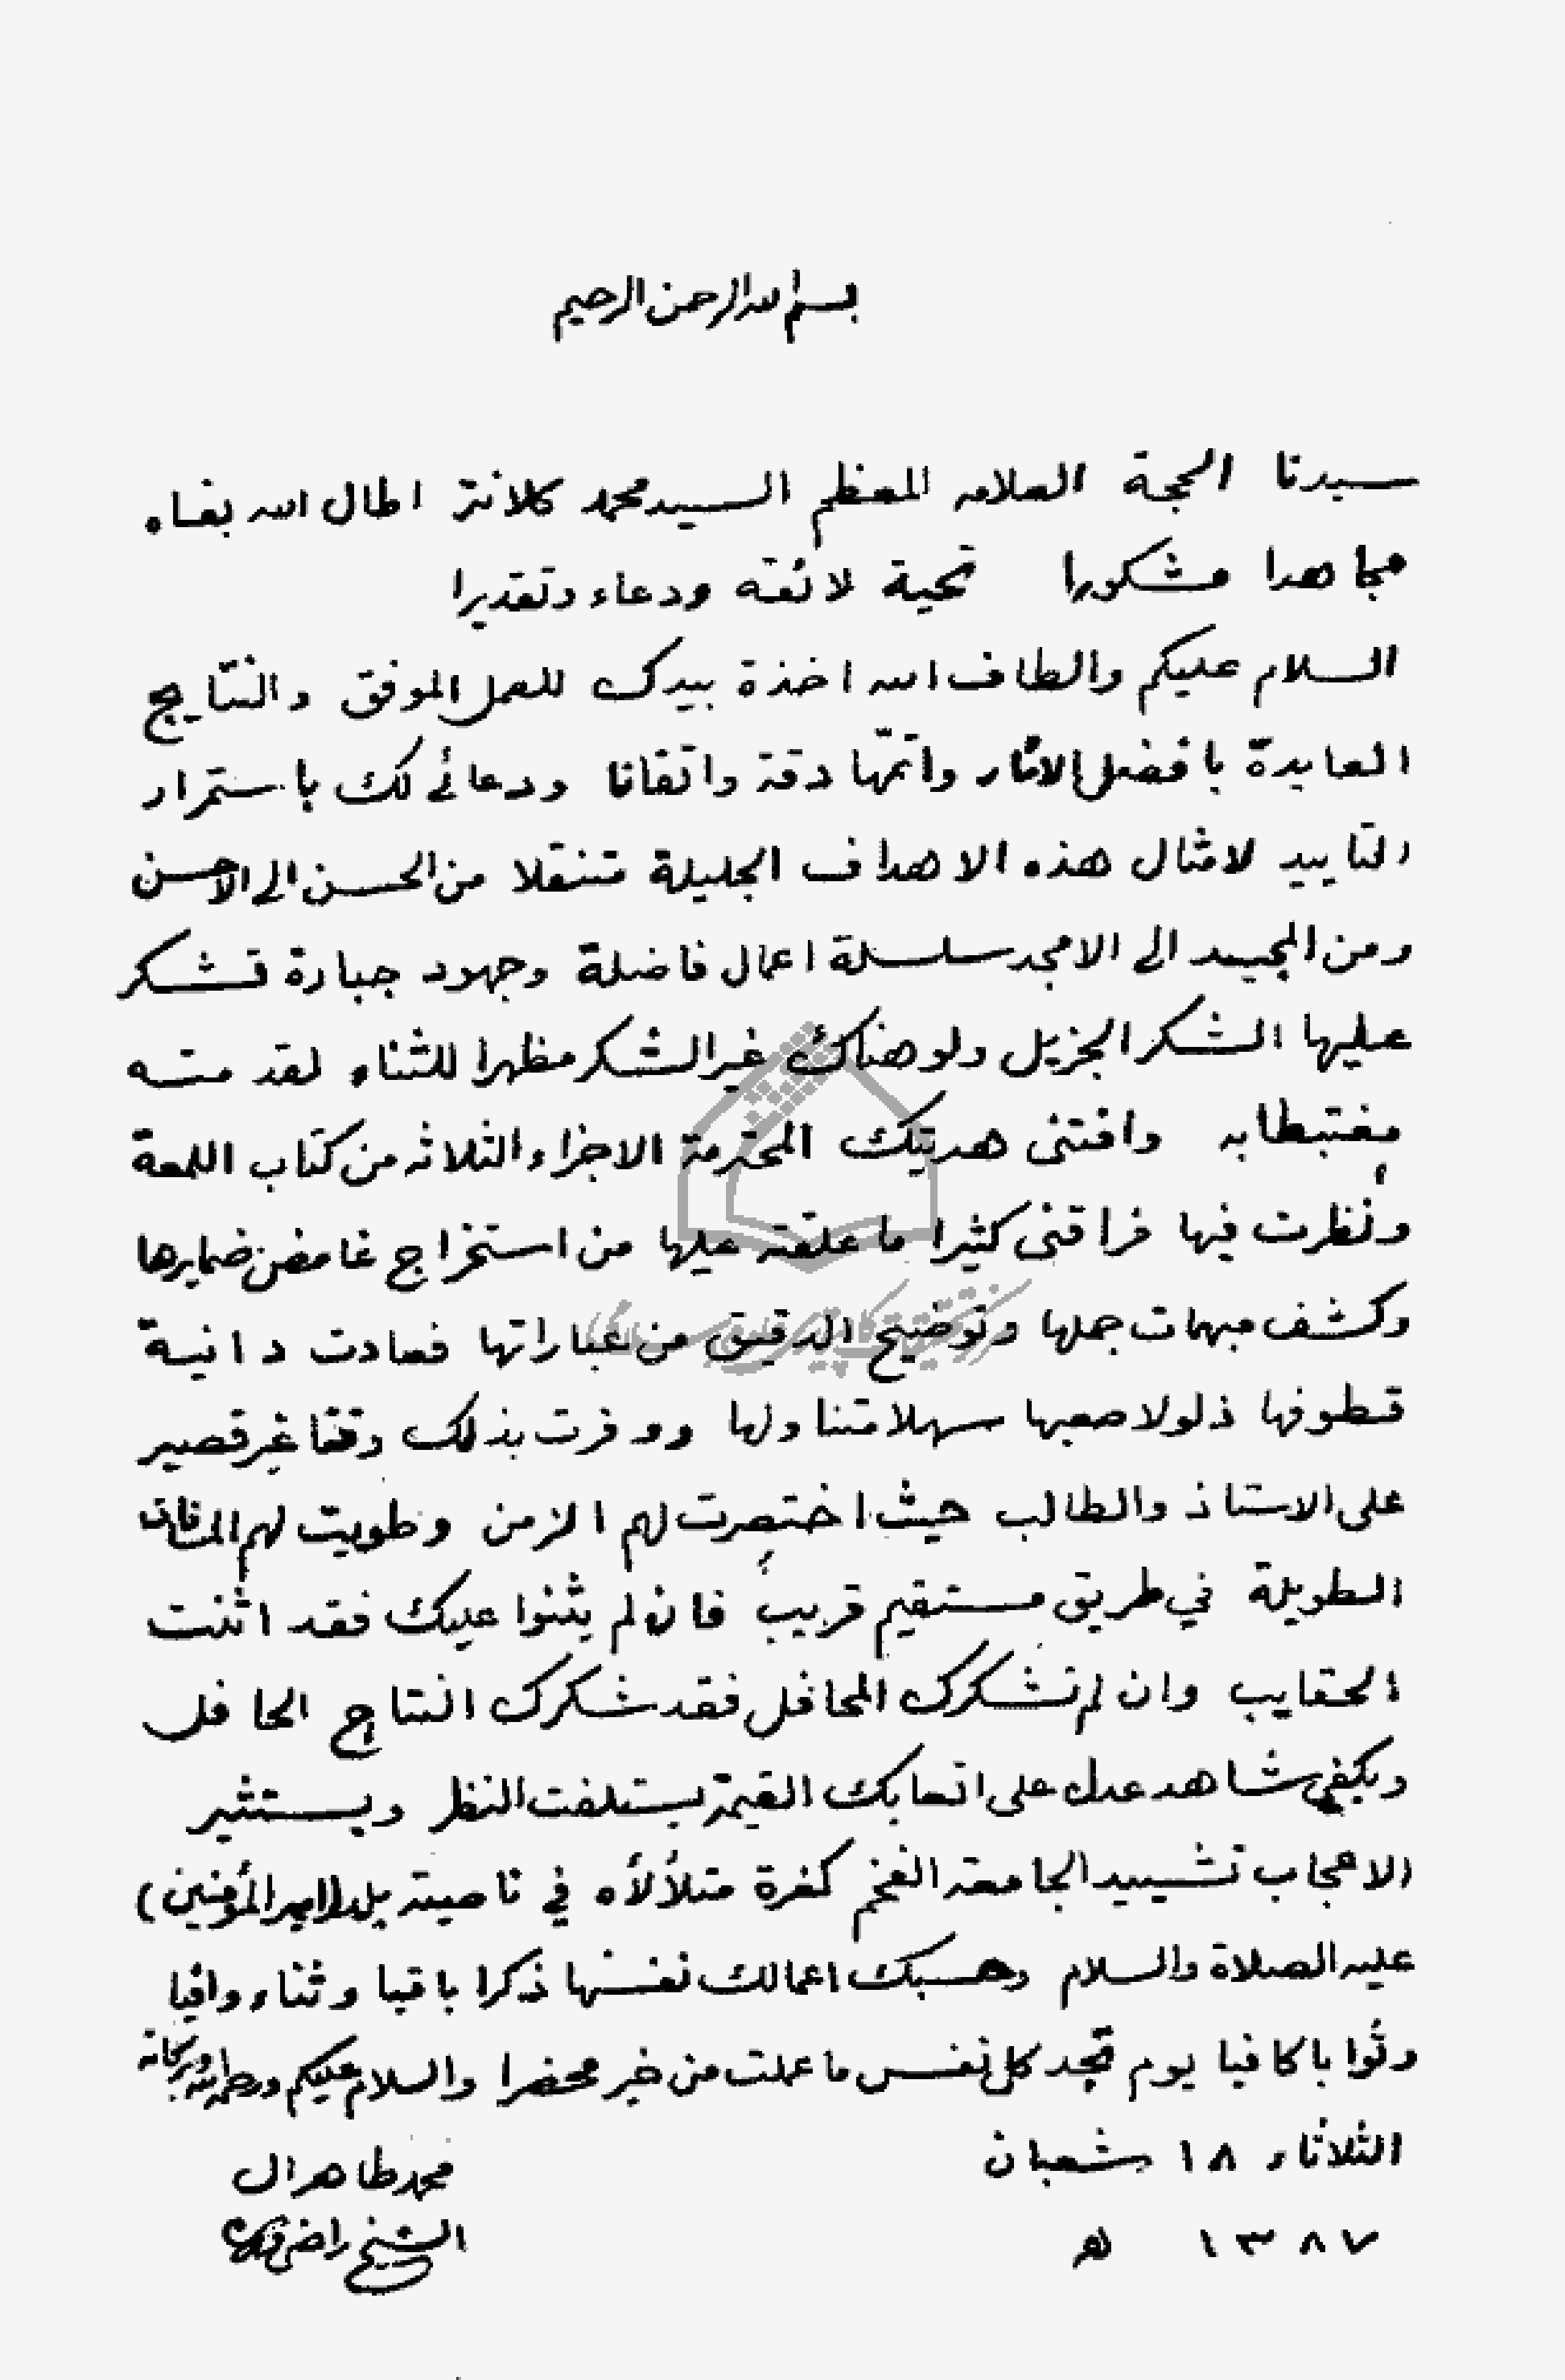 بسم الله الرحمن الرحيم
سيدنا الحجة العلامه المعظم السيد محمد كلانتر اطال الله بقاه
مجاهدا مشكورا تحية لائقه ودعاء وتقديرا
السلام عليكم والطاف الله اخذة بيدك للعمل الموفق والنتايج
العايدة بافضل الاثار واتمّها دقة واتقانا ودعائي لك باستمرار
التاييد لامثال هذه الاهداف الجليلة متنقلا من الحسن الى الاحسن
ومن المجيد الى الامجد سلسلة اعمال فاضلة وجهود جبارة تشكر
عليها الشكر الجزيل ولو هناك غير الشكر مظهرا للثناء لقدمته
مغتبطا به وافتنى هديتك المحترمة الاجزاء الثلاثه من كتاب اللمعة
ونظرت فيها فراقنى كثيرا ما علقته عليها من استخراج غامض ضمايرها
وكشف مبهمات جملها وتوضيح الدقيق من عباراتها فعادت دانية
قطوفها ذلولا صعبها سهلا متناولها ووفرت بذلك وقتا غير قصير
على الاستاذ والطالب حيث اختصرت لهم الزمن وطويت لهم المسافات
الطويلة في طريق مستقيم قريب فان لم يثنوا عليك فقد اثنت
الحقايب وان لم تشكرك المحافل فقد شكرك انتاج الحافل
ويكفي شاهد عدل على اتعابك القيمة يستلفت النظر ويستثير
الاعجاب تشييد الجامعة الفخم كغرة متلألأه في ناصية بلد (امير المؤمنين)
عليه الصلاة والسلام وحسبك اعمالك نفسها ذكرا باقيا وثناء وافيا
وثوابا كافيا يوم تجد كل نفس ما عملت من خير محضرا والسلام عليكم ورحمة الله وبركاته
الثلاثاء ١٨ شعبان
محمد طاهر ال
١٣٨٧ ه
الشيخ راضي